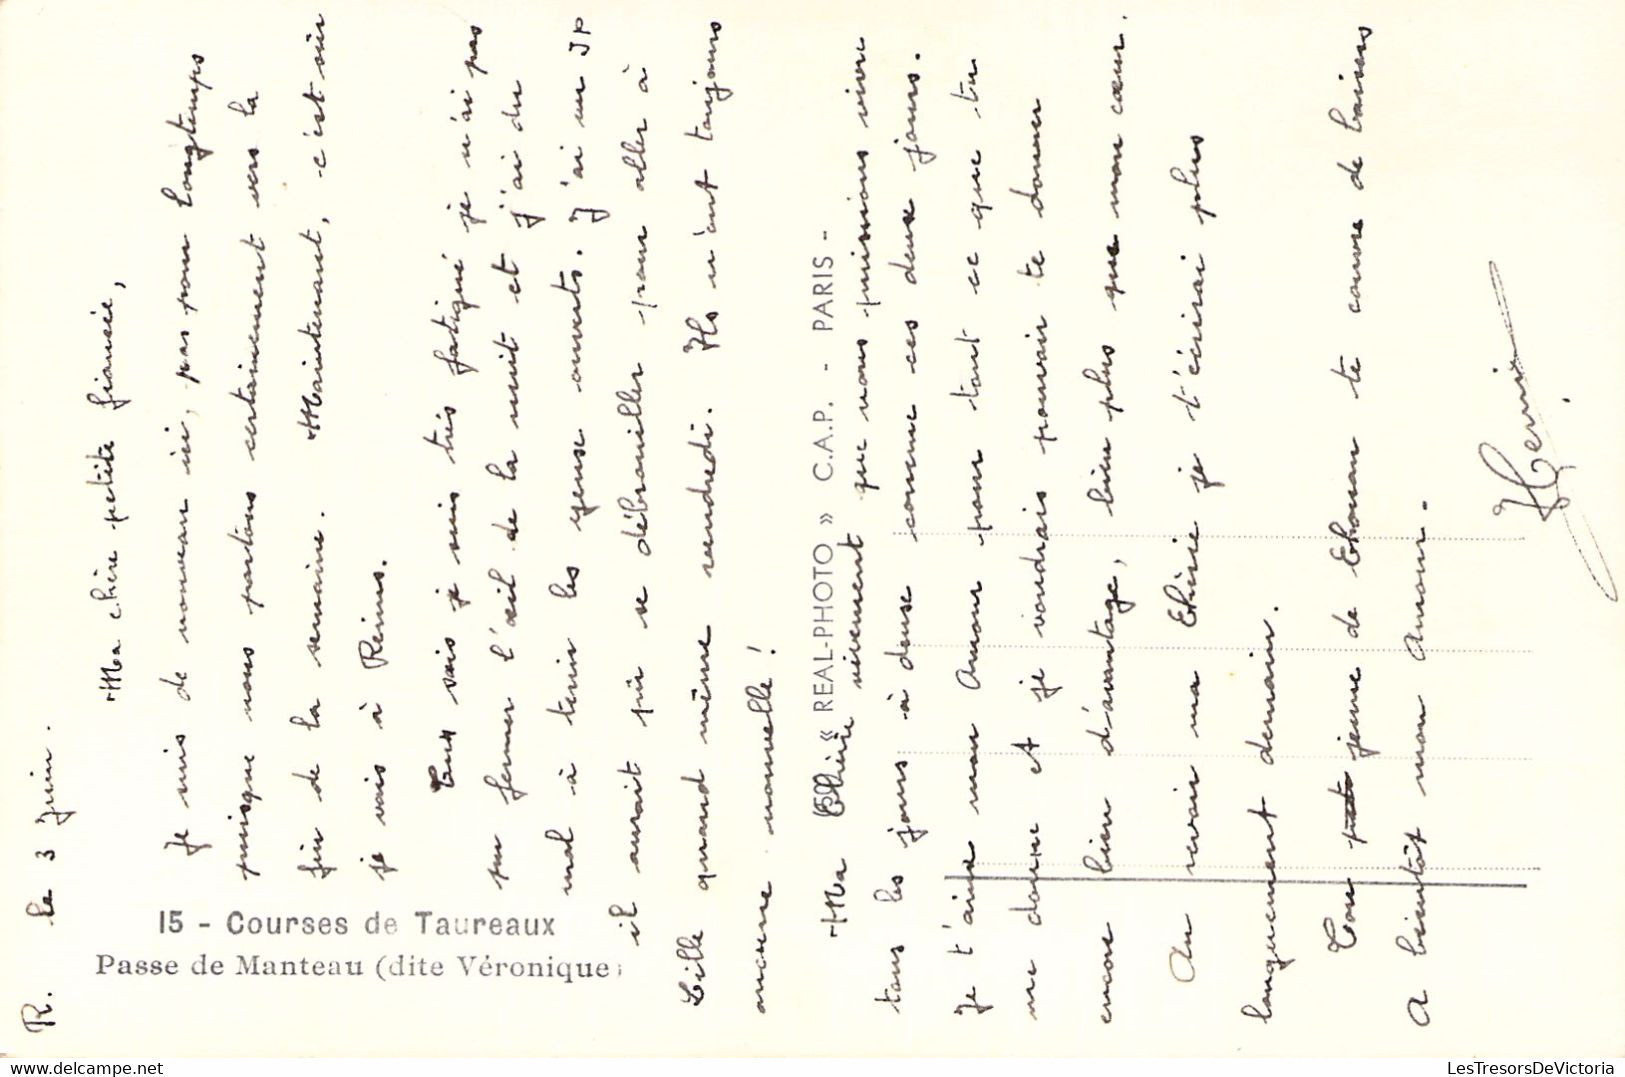 R. le 3 Juin.
Ma chère petite fiancée,
Je suis de nouveau ici, pas pour longtemps
puisque nous partons certainement vers la
fin de la semaine. Maintenant, c'est sûr
je vais à Reims.
Tu vois je suis très fatigué je n'ai pas
pu fermer l'œil de la nuit et j'ai du
mal à tenir les yeux ouverts. J'ai vu JP
il aurait pu se débrouiller pour aller à
Lille quand même vendredi. Ils n'ont toujours
aucune nouvelle !
Ma Chérie vivement que nous puissions vivre
tous les jours à deux comme ces deux jours.
Je t'aime mon Amour pour tout ce que tu
me donne et je voudrais pouvoir te donner
encore bien d'avantage, bien plus que mon cœur.
Au revoir ma Chérie je t'écrirai plus
longuement demain.
Ton jeune de couvre de baisers
A bientôt mon Amour.
15 - Courses de Taureaux
Passe de Manteau (dite Véronique)
« REAL-PHOTO » C.A.P. - PARIS -
LesTresorsDeVictoria
delcampe.net